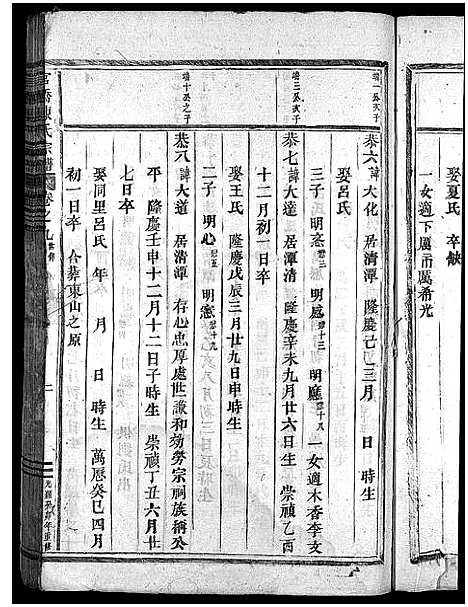 娶夏氏 卒缺
一女適下厲市厲希光
瑞一公次子
恭六 諱大化 居清潭 隆慶己巳三月 日 時生
娶呂氏
三子 明 明 明 一女適木香李文
瑞三公次子
恭七 諱大清 居清潭 隆慶辛未九月廿六日生 崇禎乙酉
十二月初一日卒
娶王氏 隆慶戊辰三月廿九日申時生
二子 明心 明
瑞十公之子
恭八 諱大道 居清潭 存心忠厚處世謙和効勞宗祠族稱公
平 隆慶壬申十二月十二日子時生 崇禎丁丑六月廿
七日卒
娶同里呂氏 年 月 日 時生 萬曆癸巳四月
初一日卒 合葬東山之原
氏宗譜 卷之九
二
年重修